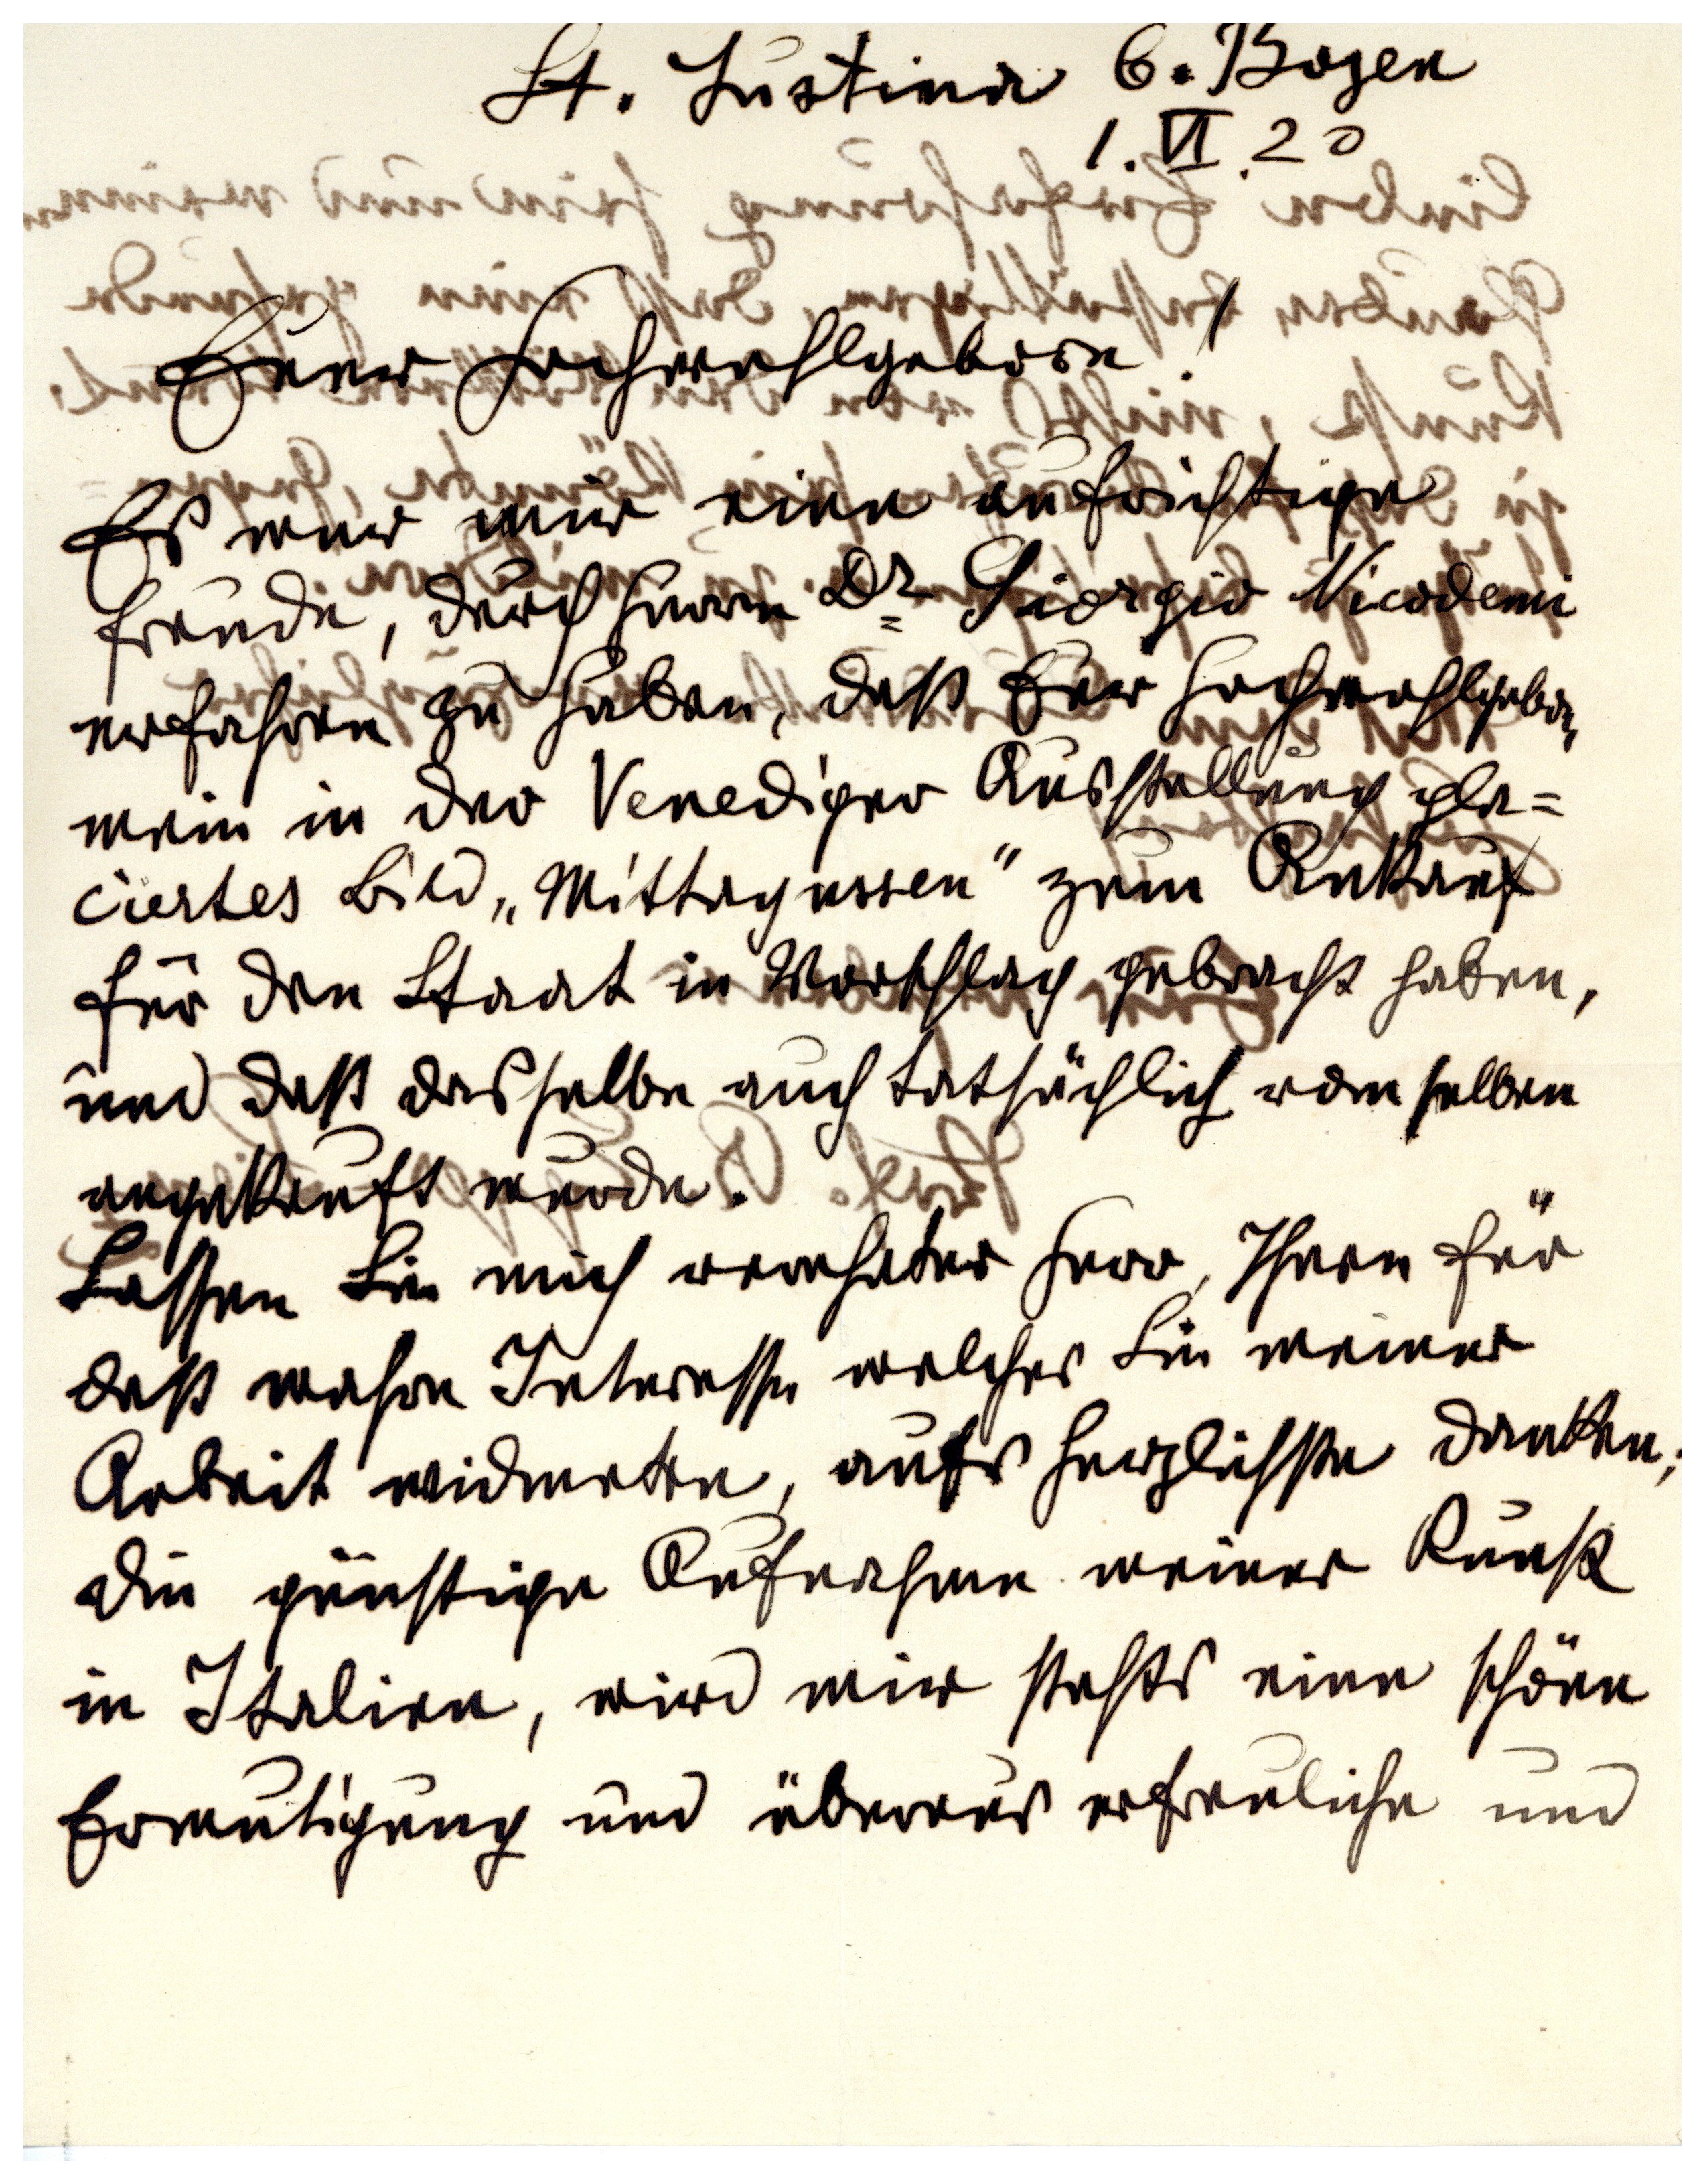 St. Justina b. Bozen
1. VI. 20
Euer Hochwohlgeboren!
Es war mir eine aufrichtige
Freude, durch Herrn Dr Giorgio Nicodemi
erfahren zu haben, daß Euer Hochwohlgebor,
mein in der Venediger Ausstellung pla=
ciertes Bild „Mittagessen" zum Ankauf
für den Staat in Vorschlag gebracht haben,
und daß dasselbe auch tatsächlich vom selben
angekauft wurde.
Lassen Sie mich verehrter Herr, Ihnen für
daß wahre Interesse welches Sie meiner
Arbeit widmeten, aufs herzlichste danken;
die günstige Aufnahme meiner Kunst
in Italien, wird mir stehts eine schöne
Ermutigung und überaus erfreuliche und